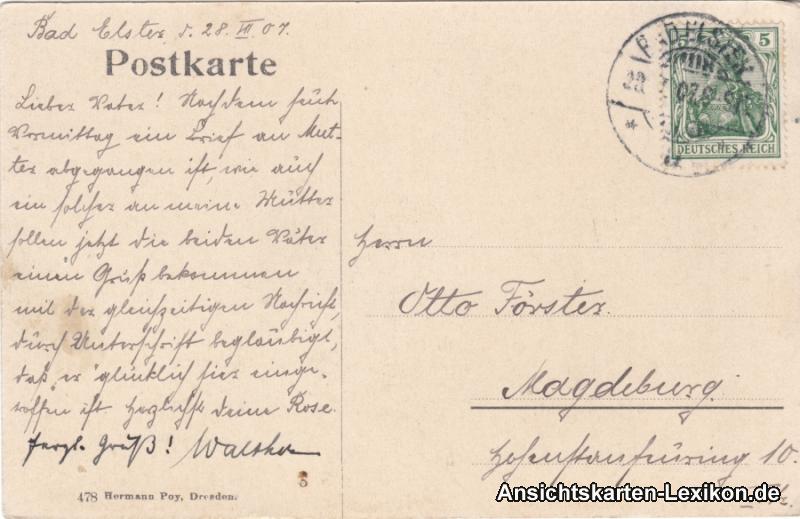 Bad Elster, d. 28. VI 07.
Postkarte
Lieber Vater! Nachdem heute
Vormittag ein Brief an Mut-
ter abgegangen ist, wie auch
ein solcher an meine Mutter
sollen jetzt die beiden Väter
einen Gruß bekommen
mit der gleichzeitigen Nachricht,
durch Unterschrift beglaubigt,
daß er glücklich hier einge-
troffen ist. Herzlichst deine Rose.
Herzl. Gruß! Walther
478 Hermann Poy, Dresden.
BAD ELSTER
5
DEUTSCHES REICH
Herrn
Otto Förster.
Magdeburg.
Hohenstaufenring 10.
Ansichtskarten-Lexikon.de